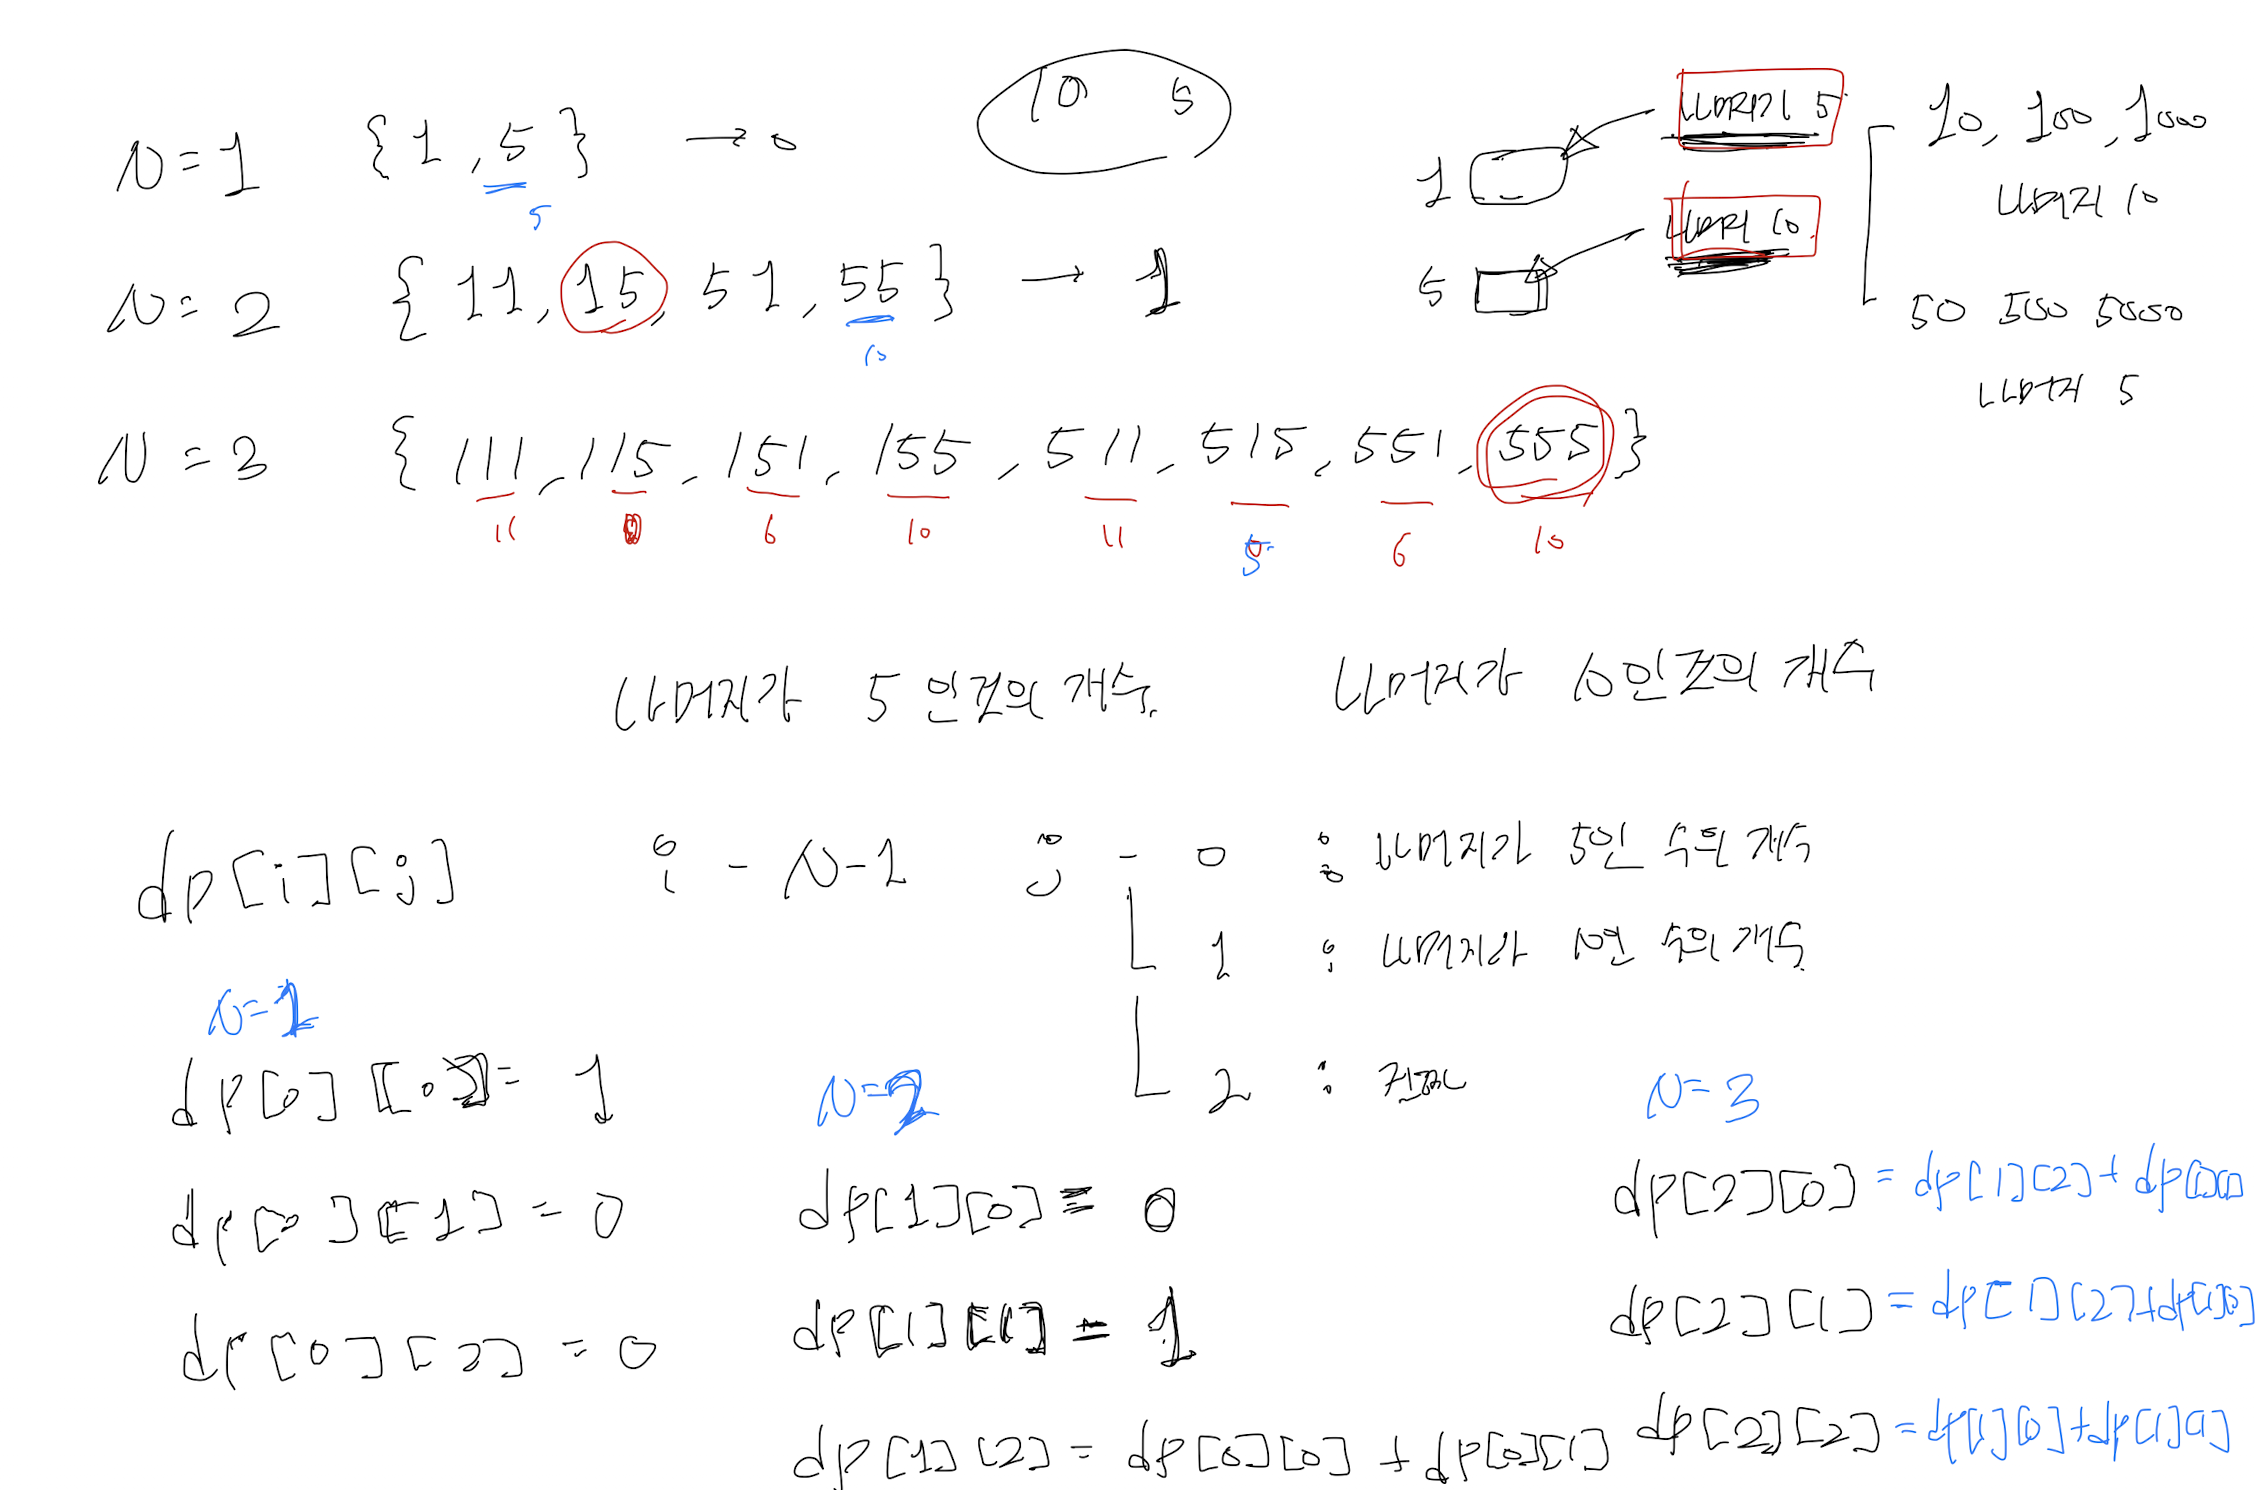 10 5
N=1 {1,5} → 0
5
나머지 5
1
10, 100, 1000
나머지 10
나머지 10
5
50 500 5000
나머지 5
N=2 {11, 15, 51, 55} → 1
10
N=3 {111, 115, 151, 155, 511, 515, 551, 555}
11 6 10 11 5 6 10
나머지가 5인것의 개수. 나머지가 10인것의 개수
dp[i][j] i - N-1 j - 0 : 나머지가 5인 수의 개수
1 : 나머지가 10인 수의 개수
2 : 전체
N=1
dp[0][0] = 1
dp[0][1] = 0
dp[0][2] = 0
N=2
dp[1][0] = 0
dp[1][1] = 1
dp[1][2] = dp[0][0] + dp[0][1]
N=3
dp[2][0] = dp[1][2] + dp[1][1]
dp[2][1] = dp[1][2] + dp[1][0]
dp[2][2] = dp[1][0] + dp[1][1]